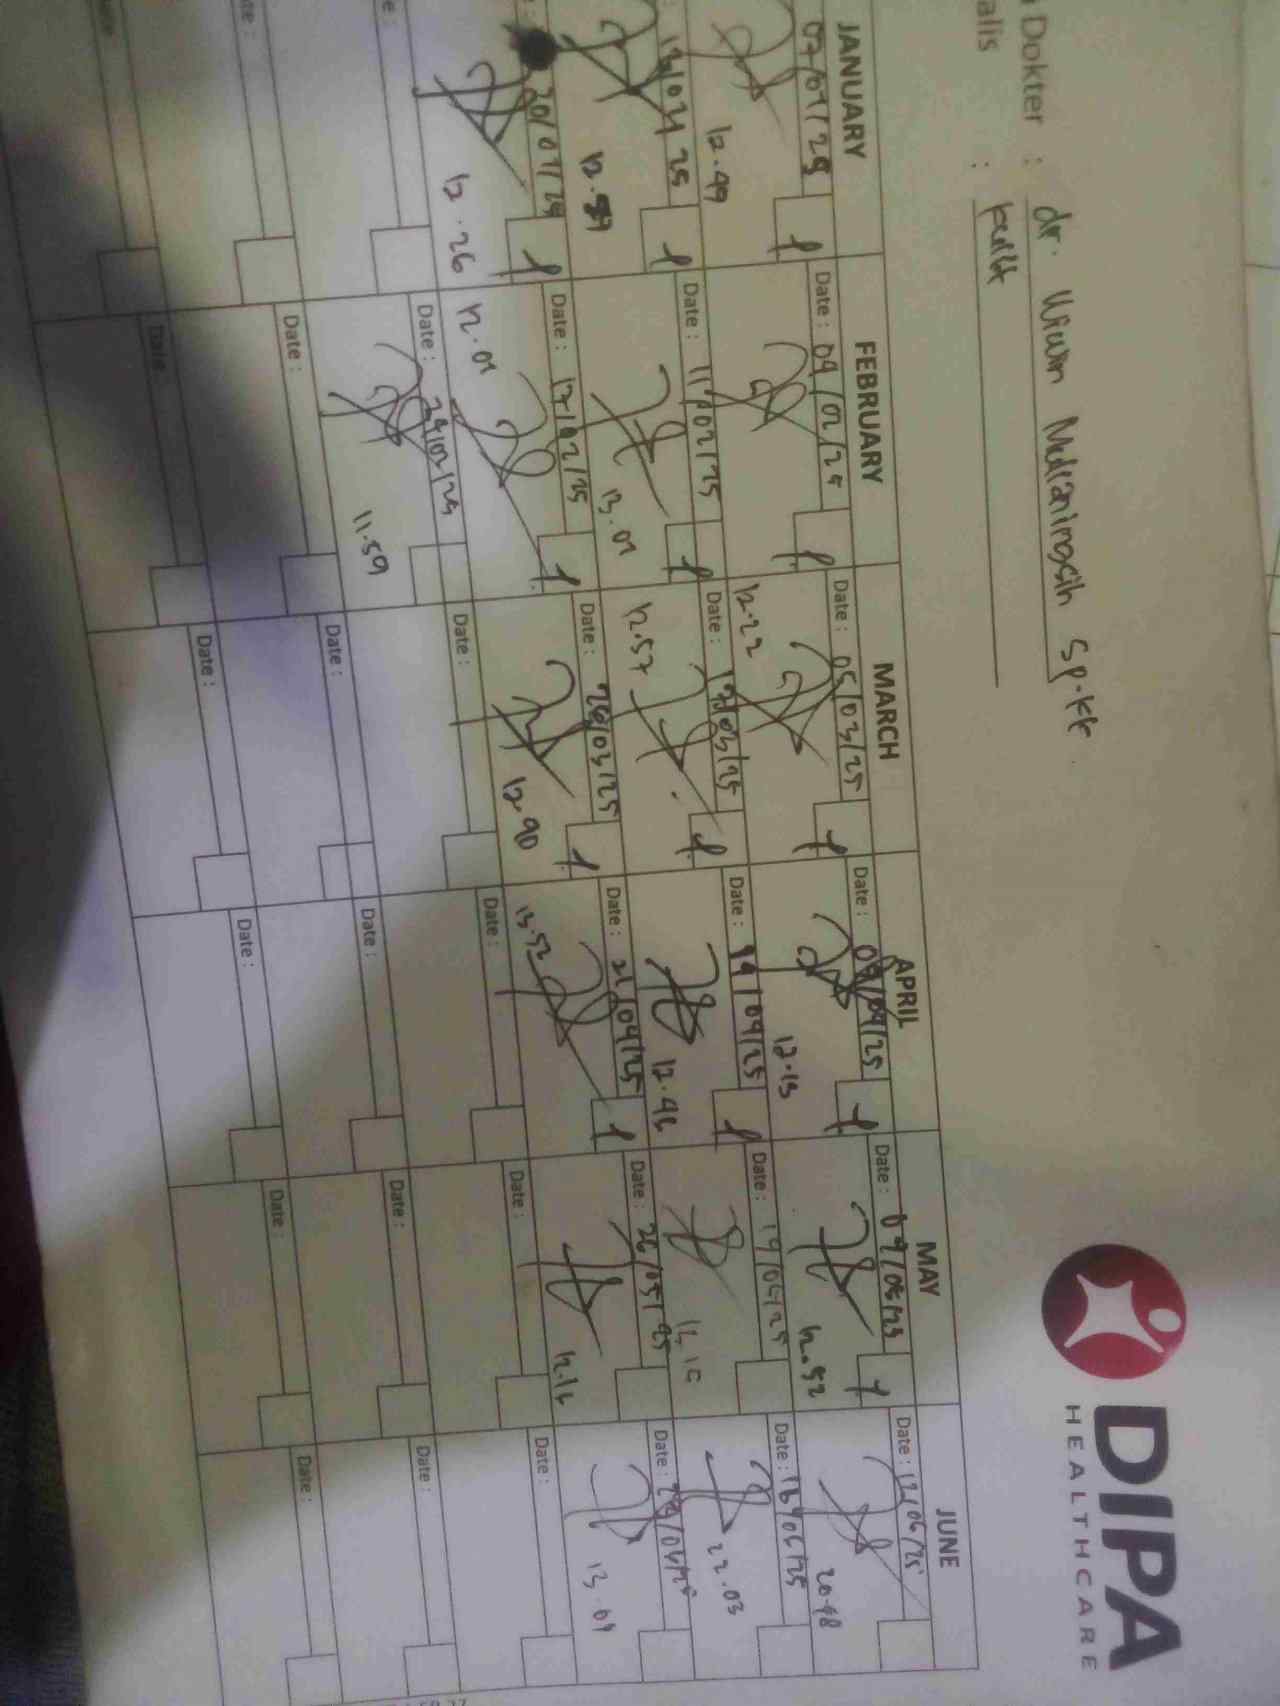 DIPA
HEALTHCARE
Dokter : dr. Wiwin Mulianingsih Sp.KK
alis : kulit
JANUARY FEBRUARY MARCH APRIL MAY JUNE
07/01/25 Date : 04/02/25 Date : 05/03/25 Date : 09/04/25 Date : 09/05/25 Date : 12/06/25
12.49 12.22 12.15 12.52 20.18
13/01/25 Date : 11/02/25 Date : Date : 14/04/25 Date : 19/05/25 Date : 16/06/25
13.01 12.57 12.46 22.03
20/01/25 Date : 17/02/25 Date : 26/03/25 Date : 21/04/25 Date : 26/05/25 Date :
12.26 12.01 12.40 13.52 12.16 13.04
Date : 24/02/25 Date : Date : Date : Date :
11.59
Date : Date : Date : Date : Date :
Date : Date : Date : Date : Date :